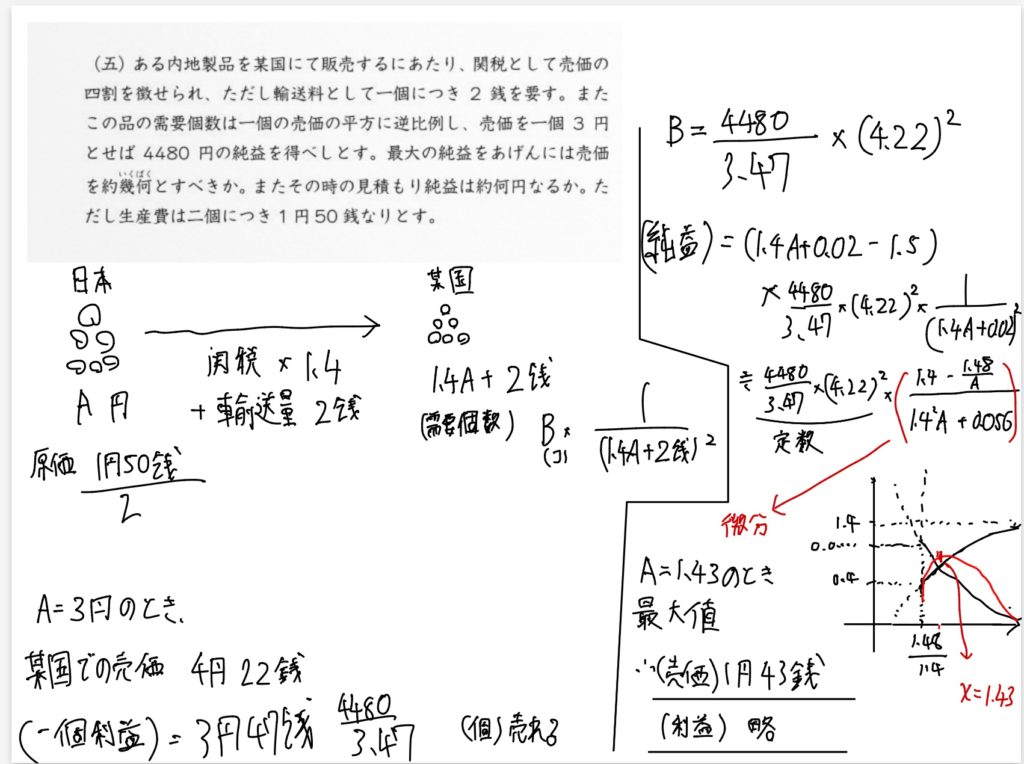 (五) ある内地製品を某国にて販売するにあたり、関税として売価の
四割を徴せられ、ただし輸送料として一個につき 2 銭を要す。また
この品の需要個数は一個の売価の平方に逆比例し、売価を一個 3 円
とせば 4480 円の純益を得べしとす。最大の純益をあげんには売価
いくばく
を約幾何とすべきか。またその時の見積もり純益は約何円なるか。た
だし生産費は二個につき 1 円 50 銭なりとす。
日本
某国
関税 × 1.4
A 円
+ 輸送量 2銭
1.4A + 2銭
(需要個数) B × 1/(1.4A+2銭)²
(コ)
原価 1円50銭/2
A=3円のとき、
某国での売価 4円 22銭
(一個利益) = 3円47銭 4480/3.47 (個) 売れる
B = 4480/3.47 × (4.22)²
(純益) = (1.4A+0.02 - 1.5)
× 4480/3.47 × (4.22)² × 1/(1.4A+0.02)²
≒ 4480/3.47 × (4.22)² × ( (1.4 - 1.48/A)/(1.4²A + 0.056) )
定数
微分
A=1.43のとき
最大値
∴(売価) 1円 43銭
(利益) 略
1.4
0.0....
0.4
1.48/1.4
x=1.43